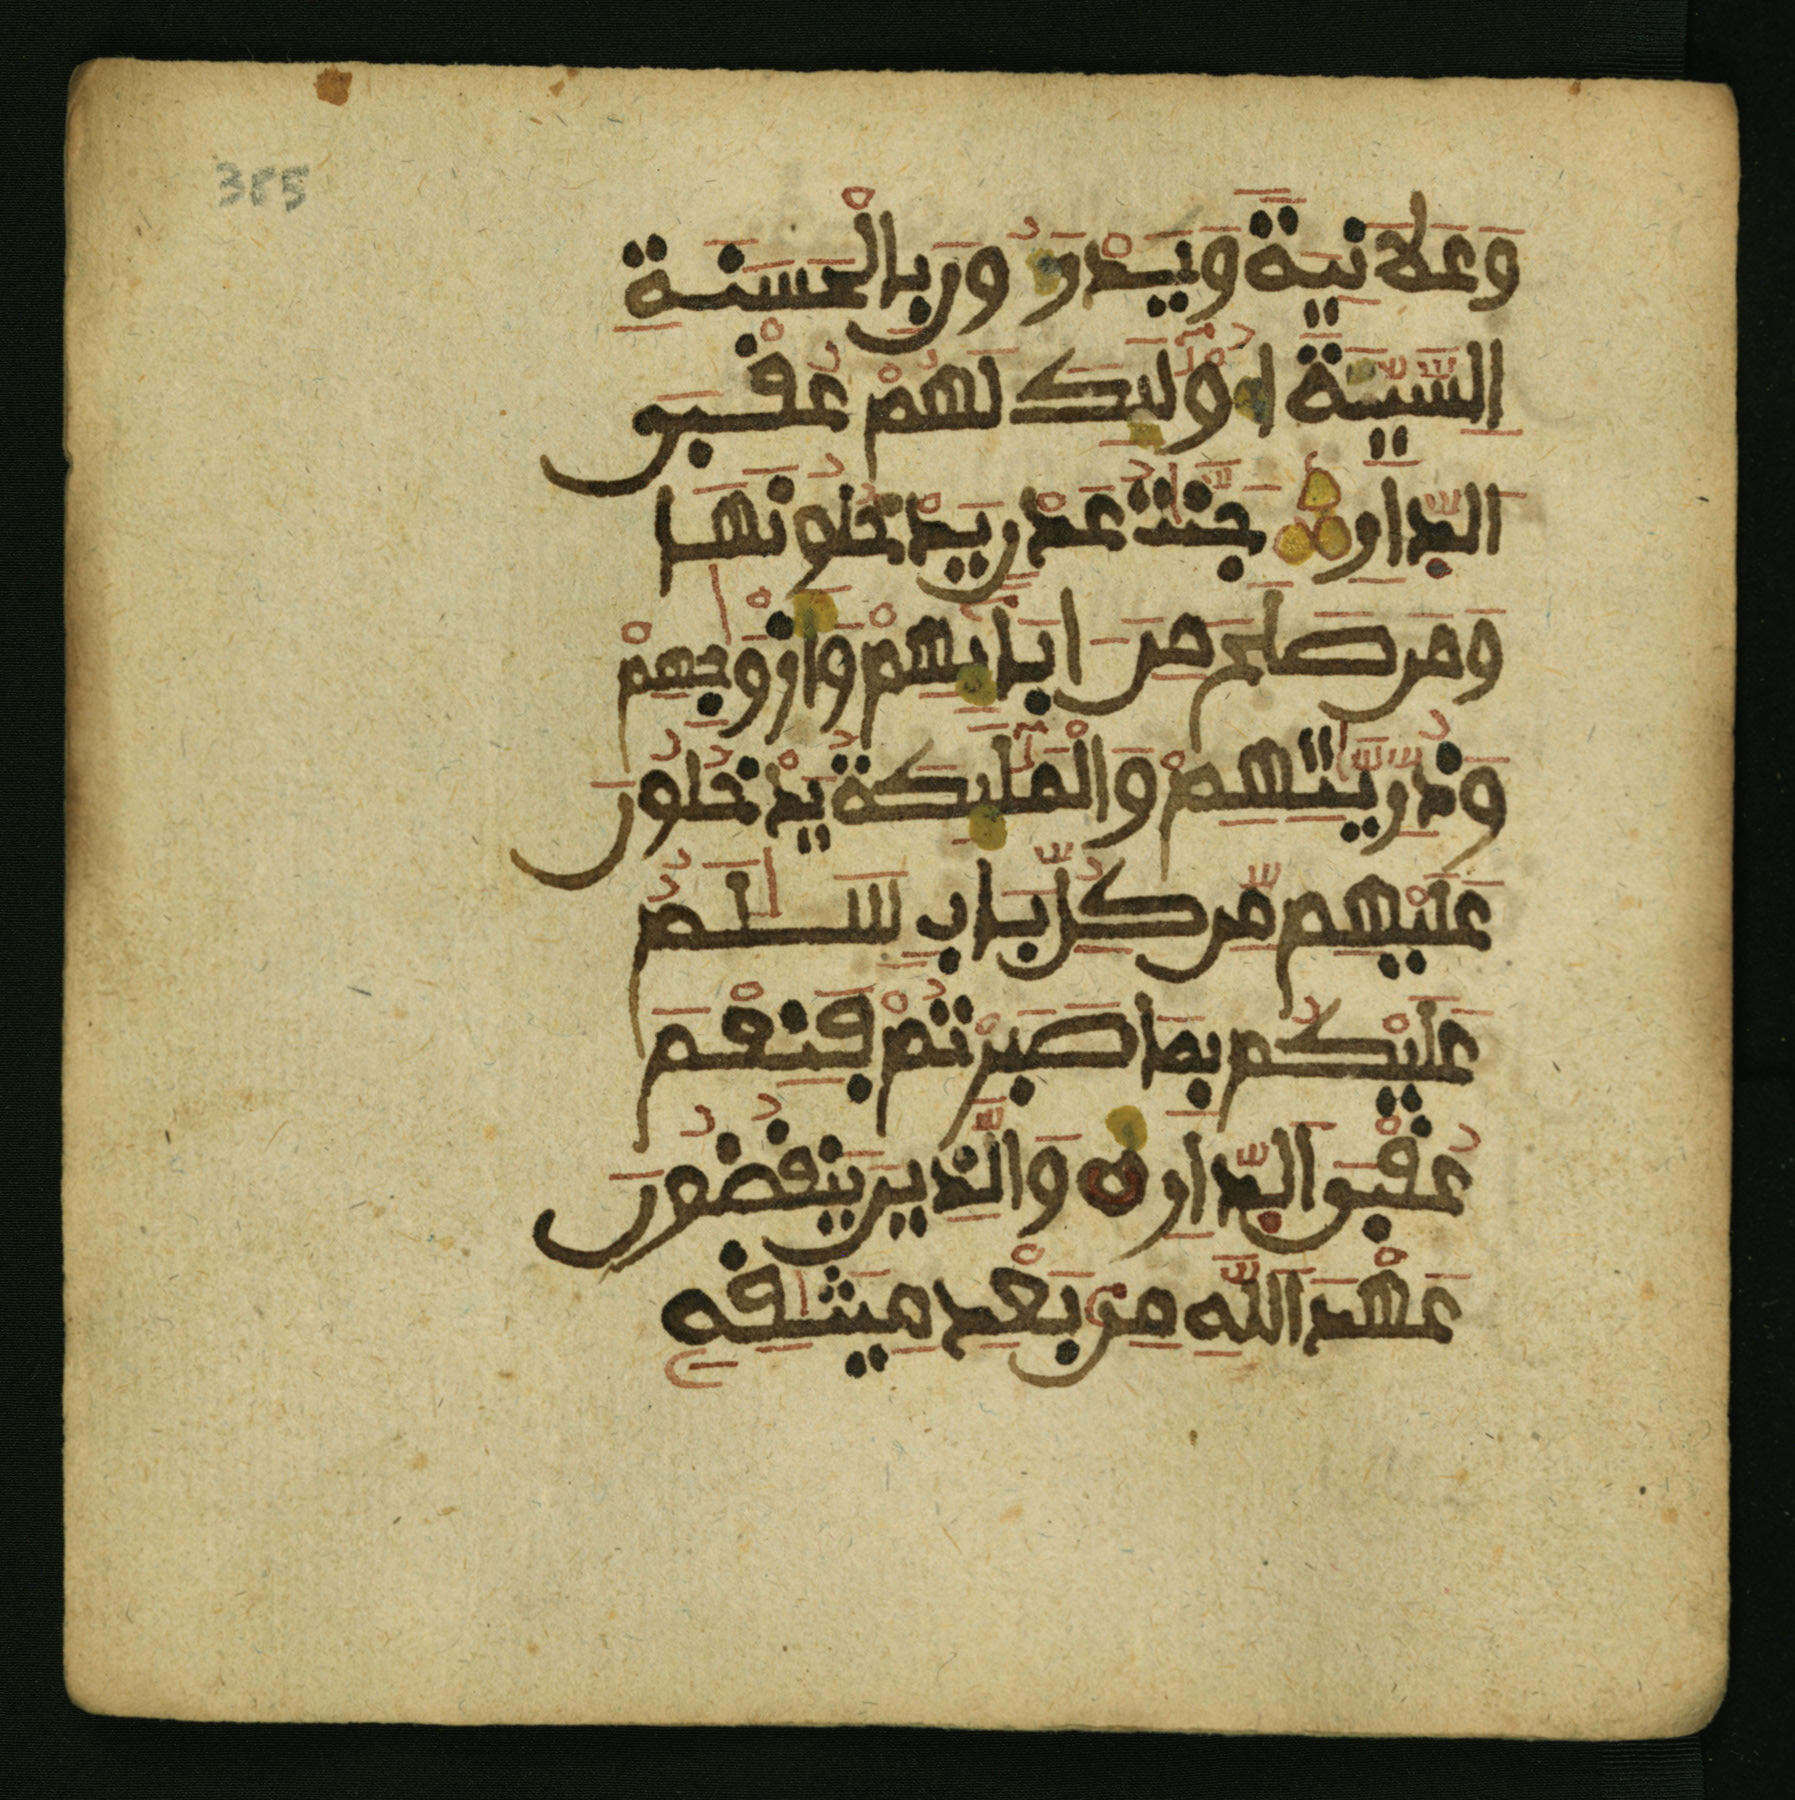 355
وَعَلَانِيَةً وَيَدْرَءُونَ بِالْحَسَنَةِ
السَّيِّئَةَ أُوْلَٰٓئِكَ لَهُمْ عُقْبَى
الدّ۪ارِ جَنَّٰتُ عَدْنٍ يَدْخُلُونَهَا
وَمَن صَلَحَ مِنَ ابَآئِهِمْ وَأَزْوَٰجِهِمْ
وَذُرِّيَّٰتِهِمْ وَالْمَلَٰٓئِكَةُ يَدْخُلُونَ
عَلَيْهِم مِّن كُلِّ بَابٍ سَلَٰمٌ
عَلَيْكُم بِمَا صَبَرْتُمْ فَنِعْمَ
عُقْبَى الدّ۪ارِ ه وَالَّذِينَ يَنقُضُونَ
عَهْدَ اللَّهِ مِنۢ بَعْدِ مِيثَٰقِهِۦ